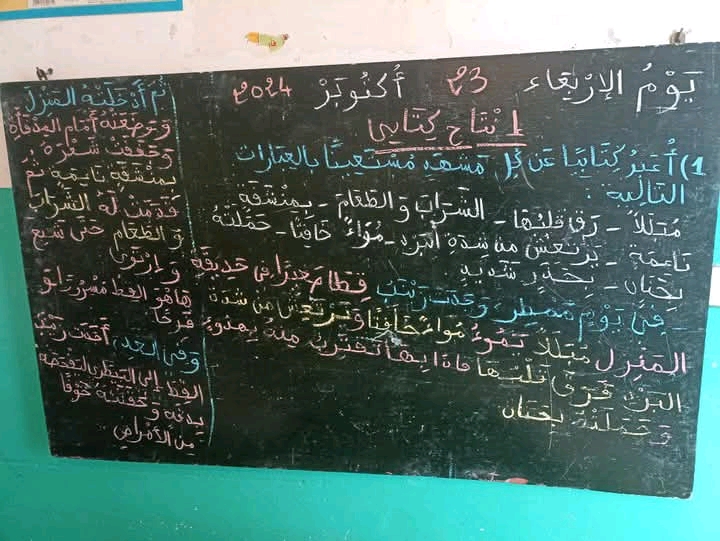 يَوْمُ الإِرْبِعَاء 23 أُكْتُوبَرْ 2024
إِنْتَاج كِتَابِي
1) أُعَبِّرُ كِتَابِيًّا عَنْ كُلِّ مَشْهَدٍ مُسْتَعِينًا بِالعِبَارَات
التَّالِيَة :
مُبَلَّلاً - رَقَّ قَلْبُهَا - الشَّرَابَ وَالطَّعَامَ - بِمِنْشَفَةٍ
نَاعِمَة - يَرْتَعِشُ مِنْ شِدَّةِ البَرْدِ - مُوَاءً خَافِتًا - حَمَلَتْهُ
بِحَنَانٍ - بِحَذَرٍ شَدِيدٍ
- فِي يَوْمٍ مُمْطِرٍ، وَجَدَتْ زَيْنَبُ قِطًّا صَغِيرًا فِي حَدِيقَةِ
المَنْزِلِ مُبَلَّلاً يَمُوءُ مُوَاءً خَافِتًا وَيَرْتَعِشُ مِنْ شِدَّةِ
البَرْدِ فَرَقَّ قَلْبُهَا فَإِذَا بِهَا تَقْتَرِبُ مِنْهُ بِهُدُوءٍ
وَحَمَلَتْهُ بِحَنَانٍ
ثُمَّ أَدْخَلَتْهُ المَنْزِلَ
وَوَضَعَتْهُ أَمَامَ المِدْفَأَةِ
وَجَفَّفَتْ شَعْرَهُ
بِمِنْشَفَةٍ نَاعِمَةٍ ثُمَّ
قَدَّمَتْ لَهُ الشَّرَابَ
وَالطَّعَامَ حَتَّى شَبِعَ
وَارْتَوَى
هَا هُوَ القِطُّ مَسْرُورًا
فَرِحًا
وَفِي الغَدِ، أَخَذَتْ زَيْنَبُ
القِطَّ إِلَى البَيْطَرِيِّ لِتَفَحُّصِهِ
بِدِقَّةٍ وَحَقَنَتْهُ خَوْفًا
مِنَ الأَمْرَاضِ